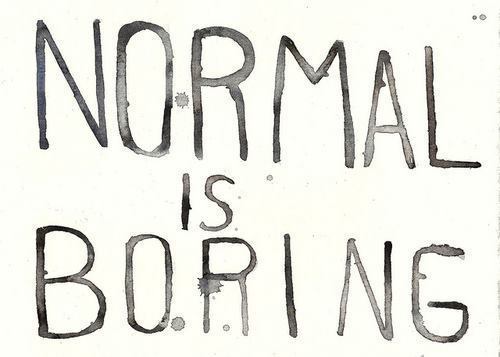 NORMAL
IS
BORING